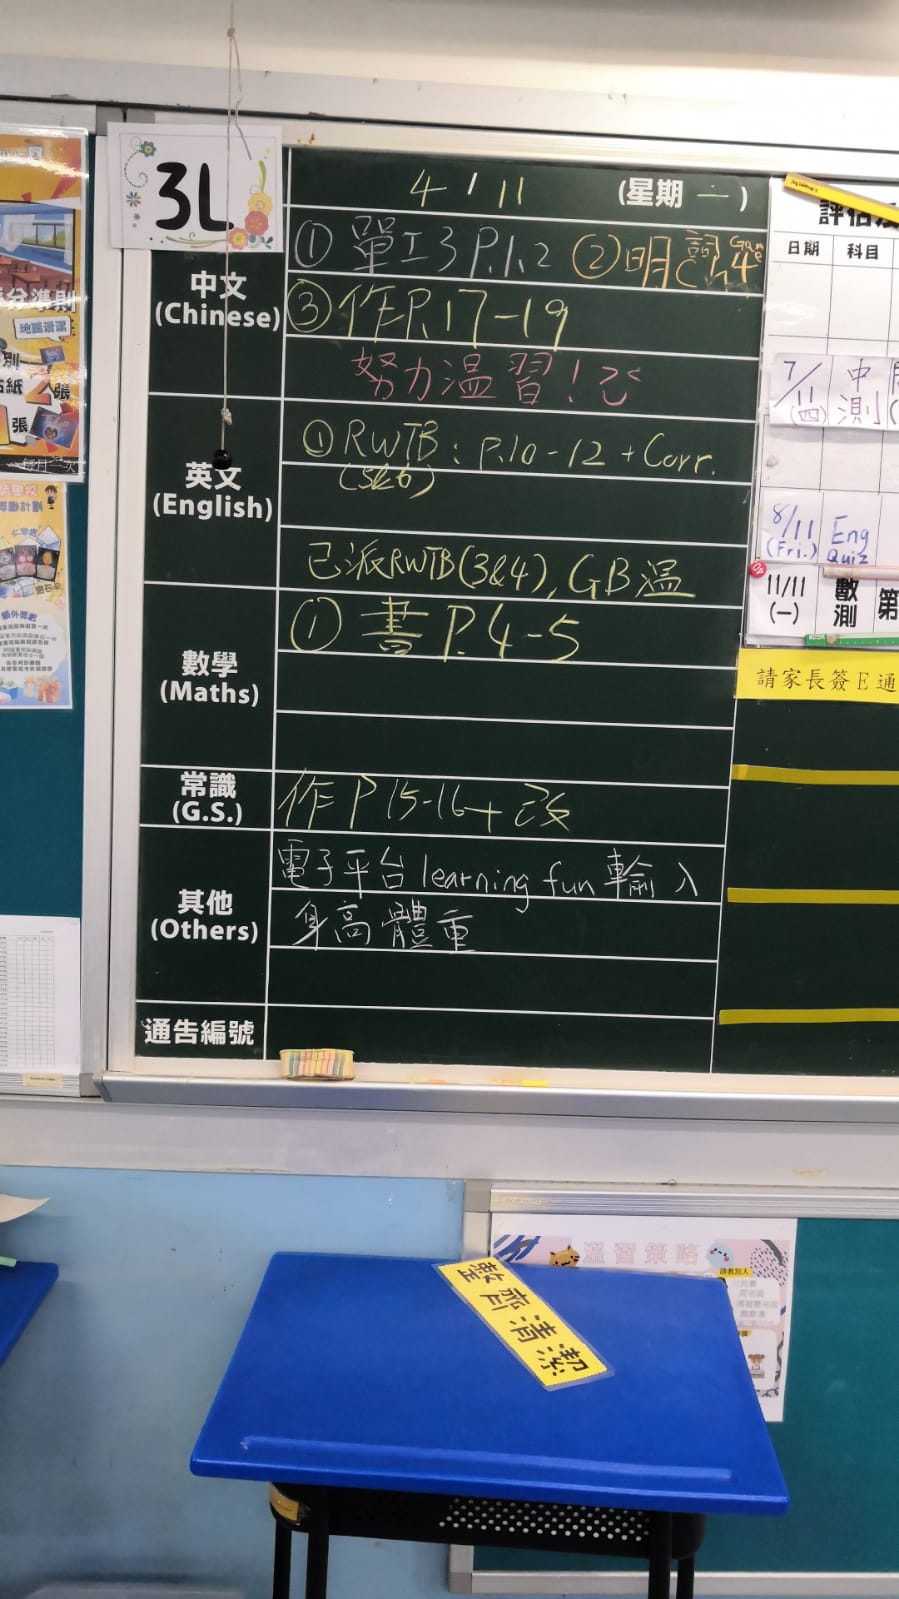 3L
4/11 (星期一)
中文
(Chinese)
① 單工3 P.1,2 ② 明詞 Ch4
③ 作P.17-19
努力溫習!
英文
(English)
① RWTB: P.10-12 + Corr.
(5&6)
已派RWTB(3&4), GB溫
數學
(Maths)
① 書 P.4-5
常識
(G.S.)
作 P 15-16 + 改
其他
(Others)
電子平台 learning fun 輸入
身高體重
通告編號
日期 科目
7/11 (四) 中測
8/11 (Fri.) Eng Quiz
11/11 (一) 數測 第
請家長簽E通
地圖清潔
每月一次
額外獎勵
溫習策略
整齊清潔